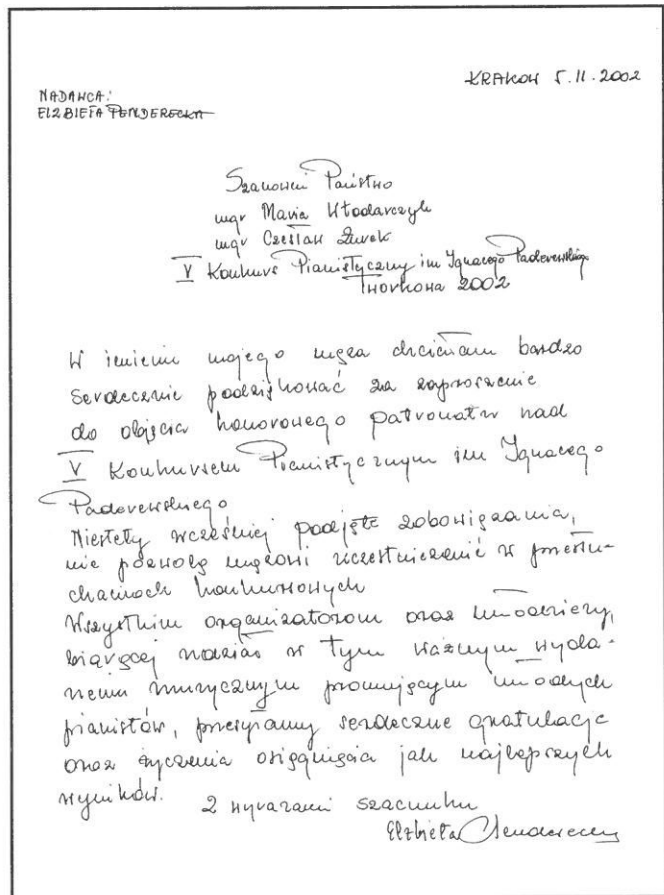 KRAKOW 5.11.2002
NADAWCA:
ELŻBIETA PENDERECKA
Szanowni Państwo
mgr Maria Włodarczyk
mgr Czesław Żurek
V Konkurs Pianistyczny im Ignacego Paderewskiego
TWORKOWA 2002
W imieniu mojego męża chciałam bardzo
serdecznie podziękować za zaproszenie
do objęcia honorowego patronatu nad
V Konkursem Pianistycznym im Ignacego
Paderewskiego
Niestety wcześniej podjęte zobowiązania,
nie pozwolą mężowi uczestniczenić w przesłu-
chaniach konkursowych
Wszystkim organizatorom oraz młodzieży,
biorącej udział w tym ważnym wyda-
rzeniu muzycznym promującym młodych
pianistów, przesyłamy serdeczne gratulacje
oraz życzenia osiągnięcia jak najlepszych
wyników.
Z wyrazami szacunku
Elżbieta Penderecka